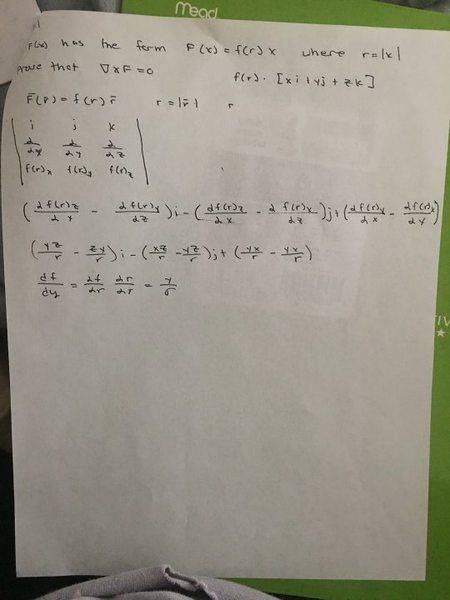 Mead
F(x) has the form F(x) = f(r) x where r = |x|
prove that ∇ x F = 0 f(r) · [xi + yj + zk]
F̄(r̄) = f(r) r̄ r = |r̄| r
i j k
∂/∂x ∂/∂y ∂/∂z
f(r)x f(r)y f(r)z
(∂f(r)z/∂y - ∂f(r)y/∂z)i - (∂f(r)z/∂x - ∂f(r)x/∂z)j + (∂f(r)y/∂x - ∂f(r)x/∂y)
(yz/r - zy/r)i - (xz/r - yz/r)j + (yx/r - yx/r)
df/dy = ∂f/∂r ∂r/∂r = y/r